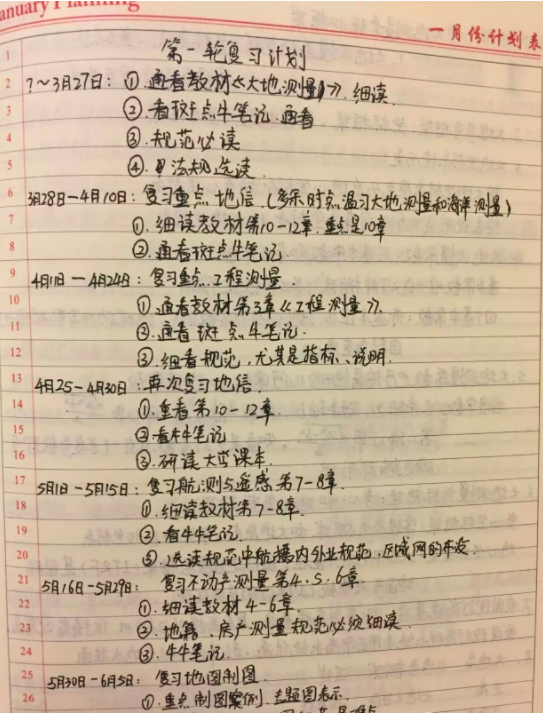 anuary Planning
一月份计划表
1 第一轮复习计划
2 ?～3月27日：①.通看教材《大地测量》，细读.
3 ②.看斑点牛笔记.通看
4 ③.规范必读
5 ④.法规选读.
6 3月28日—4月10日：复习重点地信.(多余时点温习大地测量和海洋测量)
7 ①.细读教材第10-12章.重点是10章
8 ②.通看斑点牛笔记.
9 4月11日—4月24日：复习重点.工程测量.
10 ①.通看教材第3章《工程测量》.
11 ②.通看斑点牛笔记.
12 ③.细看规范，尤其是指标、说明.
13 4月25-4月30日：再次复习地信.
14 ①.重看第10-12章
15 ②看牛牛笔记
16 ③.研读大学课本.
17 5月1日-5月15日：复习航测与遥感第7-8章.
18 ①.细读教材第7-8章.
19 ②.看牛牛笔记.
20 ③.选读规范中航摄内外业规范，区域网的布设.
21 5月16日-5月29日：复习不动产测量第4.5.6章.
22 ①.细读教材4-6章.
23 ②.地籍、房产测量规范必须细读.
24 ③.牛牛笔记.
25 5月30日-6月5日：复习地图制图.
26 ①.重点制图案例.专题图表示.